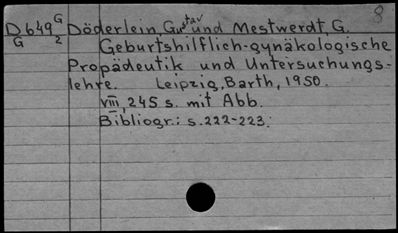 8
D649 G Döderlein, Gustav und Mestwerdt, G.
G 2 Geburtshilflich-gynäkologische
Propädeutik und Untersuchungs-
lehre. Leipzig, Barth, 1950.
VIII, 245 s. mit Abb.
Bibliogr.: s. 222-223.